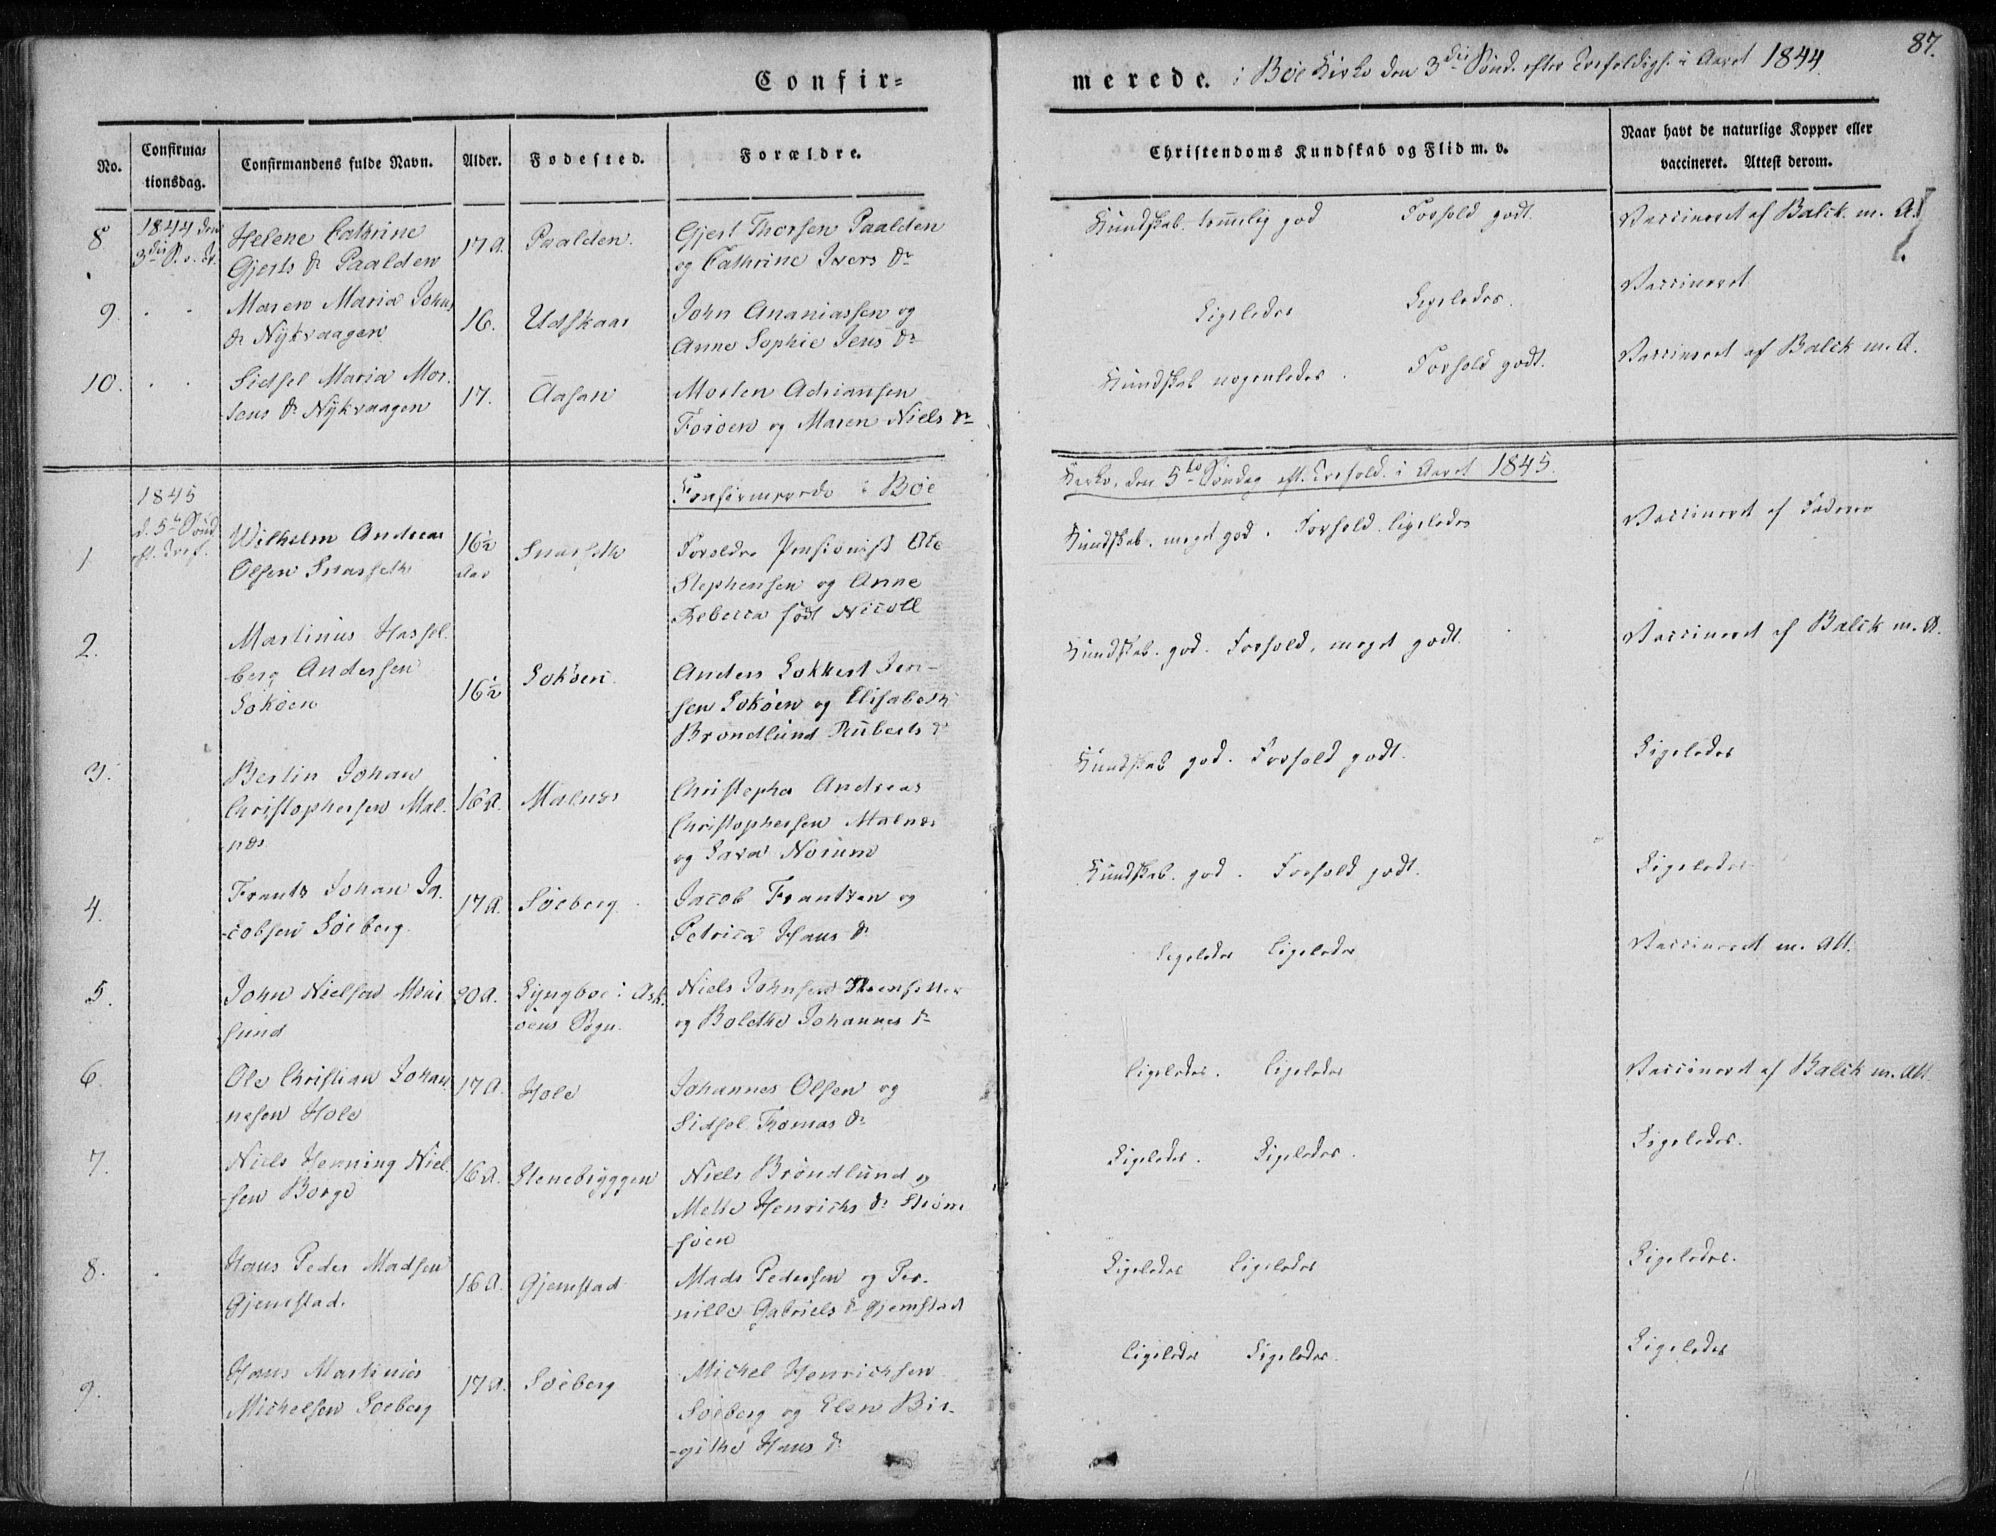 87.
Confir=
merede. i Böe Kirke den 3die Sönd. efter Trefoldigh. i Aaret 1844.
No.
Confirma=
tionsdag.
Confirmandens fulde Navn.
Alder.
Fødested.
Forældre.
Christendoms Kundskab og Flid m. v.
Naar havt de naturlige Kopper eller
vaccineret. Attest derom.
8
1844 den
3die S. e. Tr.
Helene Cathrine
Gjerts Dr Paalden
17 A.
Paalden.
Gjert Thorsen Paalden
og Cathrine Ivers Dr
Kundskab temmelig god
Forhold godt.
Vaccineret af Balck m. A.
9.
Maren Maria Johns
Dr Nykvaagen
16.
Udskaar
John Ananiassen og
Anne Sophie Jens Dr
Ligeledes
Ligeledes.
Vaccineret
10.
Sidsel Maria Mor-
tens Dr Nykvaagen
17.
Aasan
Morten Adriansen
Foröen og Maren Niels Dr
Kundskab nogenledes.
Forhold godt.
Vaccineret af Balck m. A.
Confirmerede i Böe
Kirke, den 5te Söndag eft. Trefold. i Aaret 1845.
1
1845
d. 5te Sönd.
eft. Tref.
Wilhelm Andreas
Olsen Snarseth
16½
Aar
Snarseth
Forældre Pensionist Ole
Stephensen og Anne
Rebecca födt Nicoll
Kundskab. meget god. Forhold. ligeledes
Vaccineret af Faderen
2.
Martinus Hassel-
berg Andersen
Soköen
16½
Soköen.
Anders Lokkert Jen-
sen Soköen og Elisabeth
Bröndlund Ruberts Dr
Kundskab. god. Forhold, meget godt.
Vaccineret af Balck m. A.
3.
Bertin Johan
Christophersen Mal-
næs
16 A.
Malnæs
Christopher Andreas
Christophersen Malnæs
og Sara Norum
Kundskab god. Forhold godt.
Ligeledes
4.
Frants Johan Ja-
cobsen Söeberg.
17 A.
Söeberg.
Jacob Frantzen og
Petrica Hans Dr
Kundskab. god. Forhold godt.
Ligeledes
5.
John Nielsen
sund
20 A.
Lyngboe i Ask-
öens Sogn.
Niels Johnsen
og Bolethe Johannes Dr
Ligeledes Ligeledes
Vaccineret m. Att.
6.
Ole Christian Johan-
nesen Hole
17 A.
Hole
Johannes Olsen og
Sidsel Thomas Dr
Ligeledes. Ligeledes
Vaccineret af Balck m. Att.
7.
Niels Henning Niel-
sen Borge
16 A.
Stenebryggen
Niels Bröndlund og
Mette Henrichs Dr Ström-
söen
Ligeledes. Ligeledes.
Ligeledes.
8.
Hans Peder Madsen
Gjemstad.
16 A.
Gjemstad
Mads Pedersen og Per-
nille Gabriels Dr Gjemstad
Ligeledes Ligeledes
Ligeledes.
9.
Hans Martinus
Michelsen Söeberg
17 A.
Söeberg
Michel Henrichsen
Söeberg og Elen Bir-
githe Hans Dr
Ligeledes Ligeledes.
Ligeledes